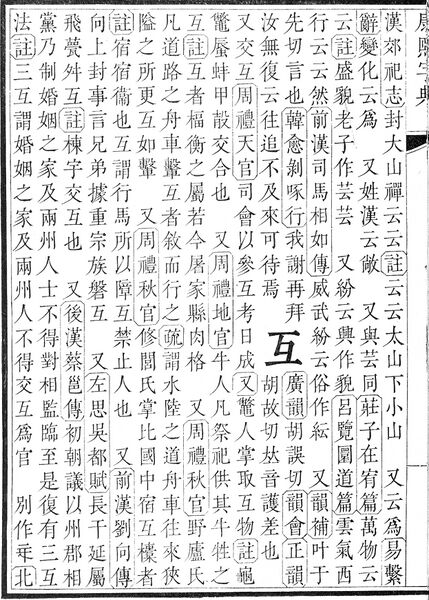 康熙字典
漢郊祀志封大山禪云云註云云太山下小山　又云爲易繫
辭變化云爲　又姓漢云敞　又與芸同莊子在宥篇萬物云
云註盛貌老子作芸芸　又紛云興作貌呂覽圜道篇雲氣西
行云云然前漢司馬相如傳威武紛云俗作紜　又韻補叶于
先切言也韓愈剝啄行我謝再拜
汝無復云往追不及來可待焉
互
廣韻胡誤切韻會正韻
胡故切𠀤音護差也
又交互周禮天官司會以參互考日成　又鼈人掌取互物註龜
鼈蜃蚌甲殼交合也　又周禮地官牛人凡祭祀供其牛牲之
互註互者楅衡之屬若今屠家縣肉格　又周禮秋官野廬氏
凡道路之舟車轚互者敘而行之疏謂水陸之道舟車往來狹
隘之所更互如轚　又周禮秋官修閭氏掌比國中宿互者
註宿宿衞也互謂行馬所以障互禁止人也　又前漢劉向傳
向上封事言兄弟據重宗族磐互　又左思吳都賦長干延屬
飛甍舛互註棟字交互也　又後漢蔡邕傳初朝議以州郡相
黨乃制婚姻之家及兩州人士不得對相監臨至是復有三互
法註三互謂婚姻之家及兩州人不得交互爲官　別作北